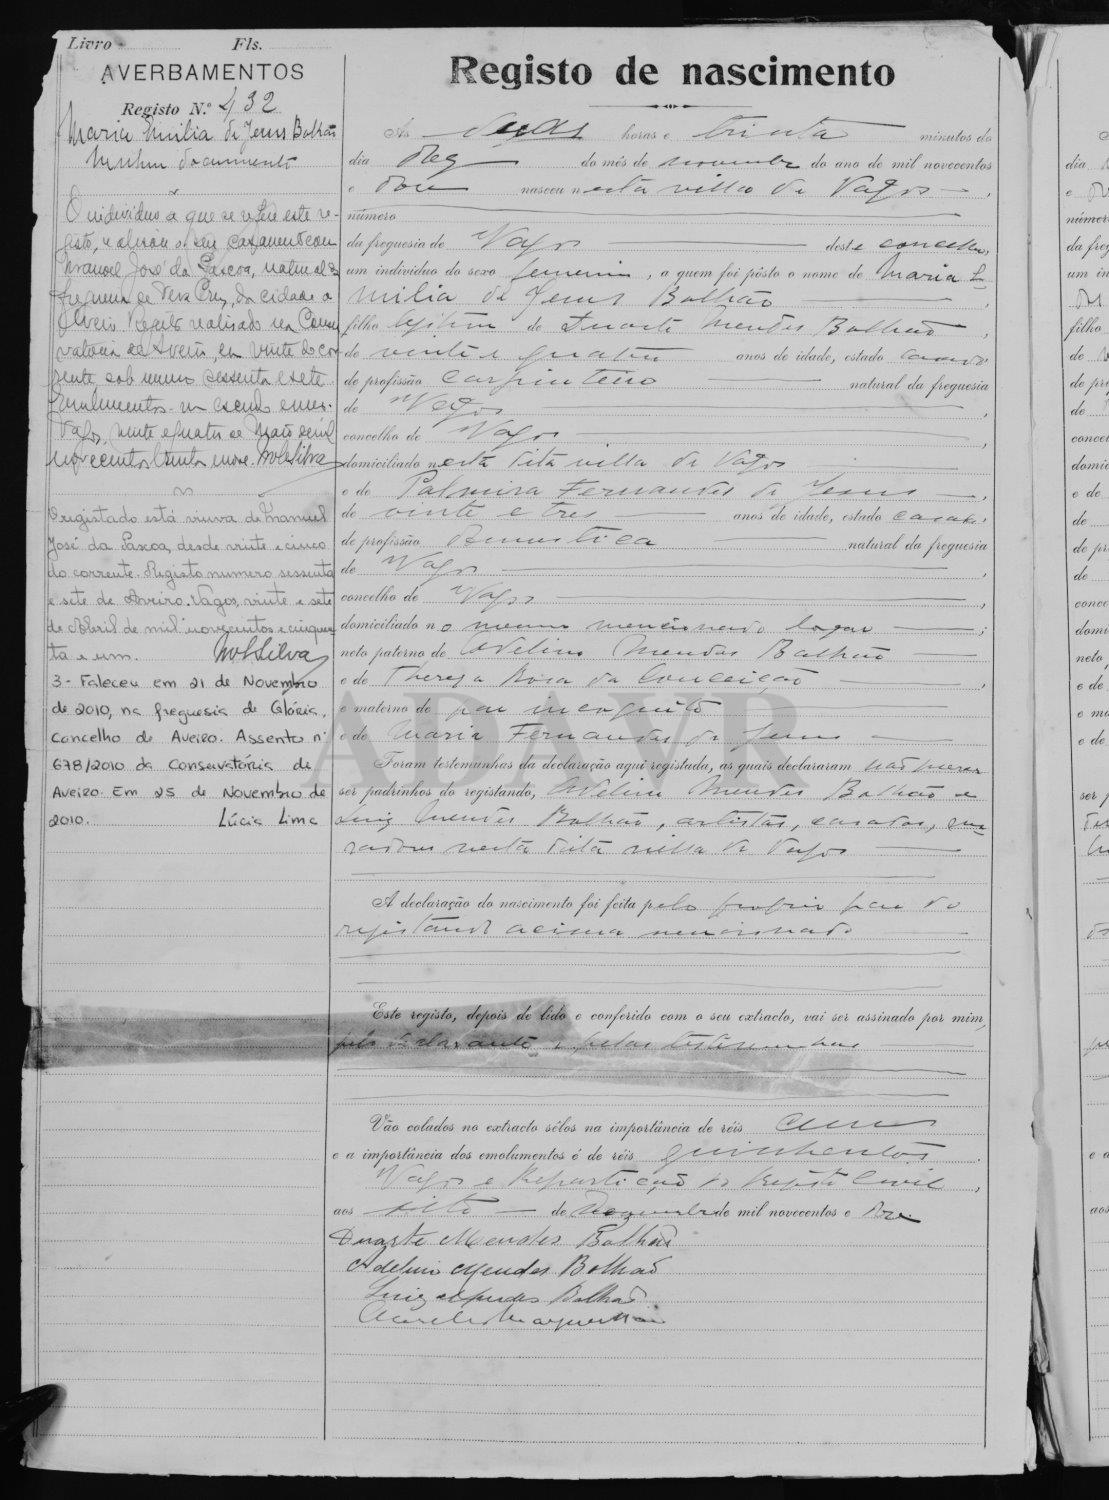 Livro Fls.
AVERBAMENTOS
Registo N.º 432
Maria Emilia de Jesus Bolhão
Nenhum documento
O individuo a que se refere este re-
gisto, realisou o seu casamento com
Manoel José da Pascoa, natural da
freguesia de Vera Cruz, da cidade de
Aveiro. Registo realisado na Conser
vatoria de Aveiro, em vinte do cor
rente, sob numero sessenta e sete.
Emolumentos um escudo
Vagos, vinte e quatro de Maio de mil
novecentos trinta e nove. MolSilva
O registado está viuva de Manuel
José da Pascoa, desde vinte e cinco
do corrente. Registo numero sessenta
e sete de Aveiro. Vagos, vinte e sete
de Abril de mil novecentos e cinquen
ta e um. MolSilva
3 - Faleceu em 21 de Novembro
de 2010, na freguesia de Glória,
Concelho de Aveiro. Assento nº
678/2010 da Conservatória de
Aveiro. Em 25 de Novembro de
2010. Lúcia Lima
Registo de nascimento
Às horas e trinta minutos do
dia dez do mês de novembro do ano de mil novecentos
e doze nasceu nesta villa de Vagos
número
da freguesia de Vagos deste concelho,
um indivíduo do sexo femenino, a quem foi pôsto o nome de Maria E-
milia de Jesus Bolhão,
filho legitimo de Duarte Mendes Bolhão,
de vinte e quatro anos de idade, estado casado
de profissão carpinteiro natural da freguesia
de Vagos,
concelho de Vagos,
domiciliado nesta dita villa de Vagos
e de Palmira Fernandes de Jesus,
de vinte e tres anos de idade, estado casada,
de profissão domestica natural da freguesia
de Vagos,
concelho de Vagos,
domiciliado no mesmo mencionado logar;
neto paterno de Adelino Mendes Bolhão
e de Thereza Rosa da Conceição,
e materno de pae incognito
e de Maria Fernandes de Jesus
Foram testemunhas da declaração aqui registada, as quais declararam não querer
ser padrinhos do registando, Adelino Mendes Bolhão e
Luiz Mendes Bolhão, artistas, casados, mo-
radores nesta dita villa de Vagos
A declaração do nascimento foi feita pelo proprio pae do
registando acima mencionado
Este registo, depois de lido e conferido com o seu extracto, vai ser assinado por mim,
pelo declarante e pelas testemunhas
Vão colados no extracto sêlos na importância de réis
e a importância dos emolumentos é de réis quinhentos.
Vagos e Repartição do Registo Civil,
aos de Dezembro de mil novecentos e doze
Duarte Mendes Bolhão
Adelino Mendes Bolhão
Luiz Mendes Bolhão
ADAVR